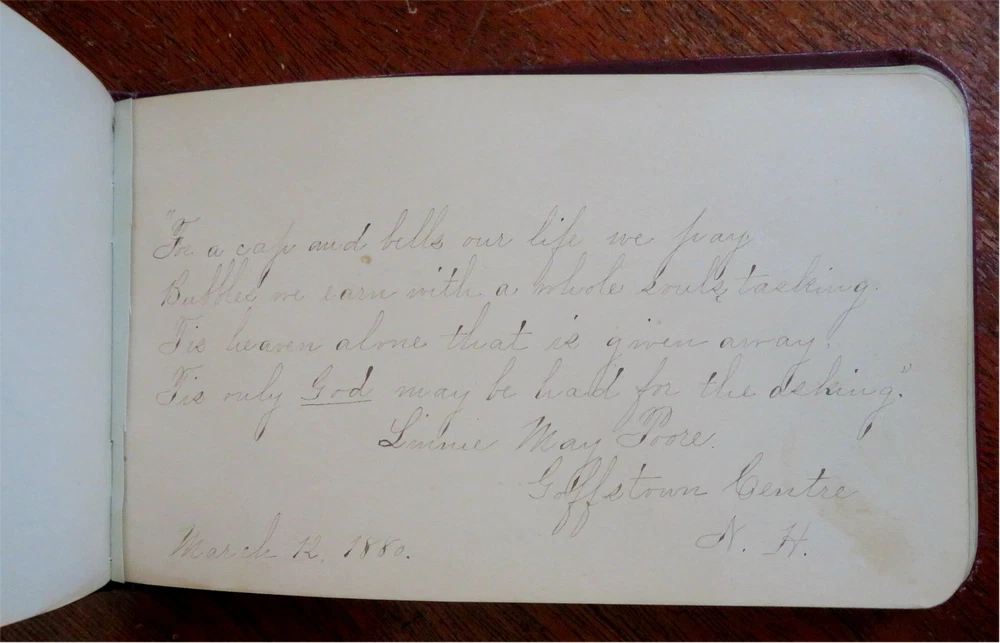 "For a cap and bells our life we pay
Bubbles we earn with a whole souls tasking.
Tis heaven alone that is given away.
Tis only God may be had for the asking."
Linnie May Poore.
Goffstown Centre
N. H.
March 12, 1880.